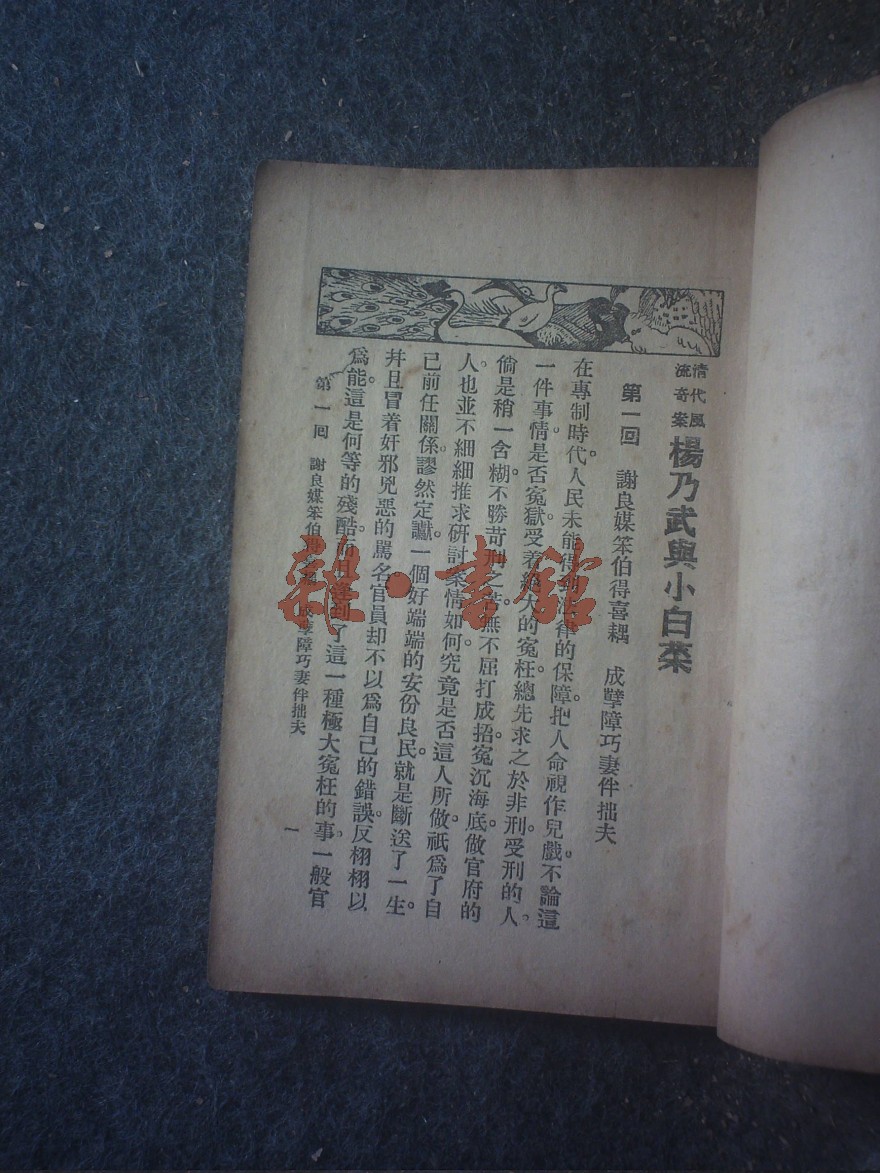 清代風
流奇案
楊乃武與小白菜
第一回　謝良媒笨伯得喜耦　成孽障巧妻伴拙夫
在專制時代。人民未能得到法律的保障。把人命視作兒戲。不論這
一件事情。是否寃獄。受着絕大的寃枉。總先求之於非刑。受刑的人。
倘是稍一含糊。不勝苛刑之苦。無不屈打成招。寃沉海底。做官府的
人。也並不細細推求研討案情如何。究竟是否這人所做。祇爲了自
己前任關係。謬然定讞。一個好端端的安份良民。就是斷送了一生。
并且冒着奸邪兇惡的罵名。官員却不以爲自己的錯誤。反栩栩以
爲能。這是何等的殘酷。而且達到了這一種極大寃枉的事。一般官
第一回　謝良媒笨伯得喜耦　成孽障巧妻伴拙夫
一
雜·書館